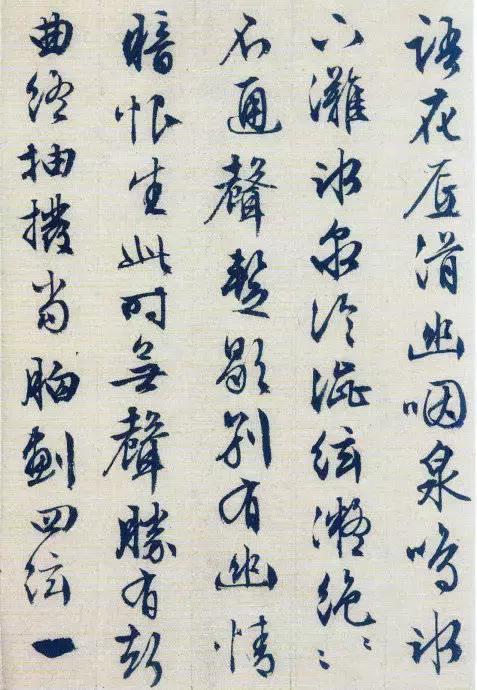 語花底滑幽咽泉鳴冰
下灘冰泉冷澁絃凝絶〻〻
不通聲暫歇別有幽情
暗恨生此時無聲勝有聲
曲終抽撥當胸劃四絃一